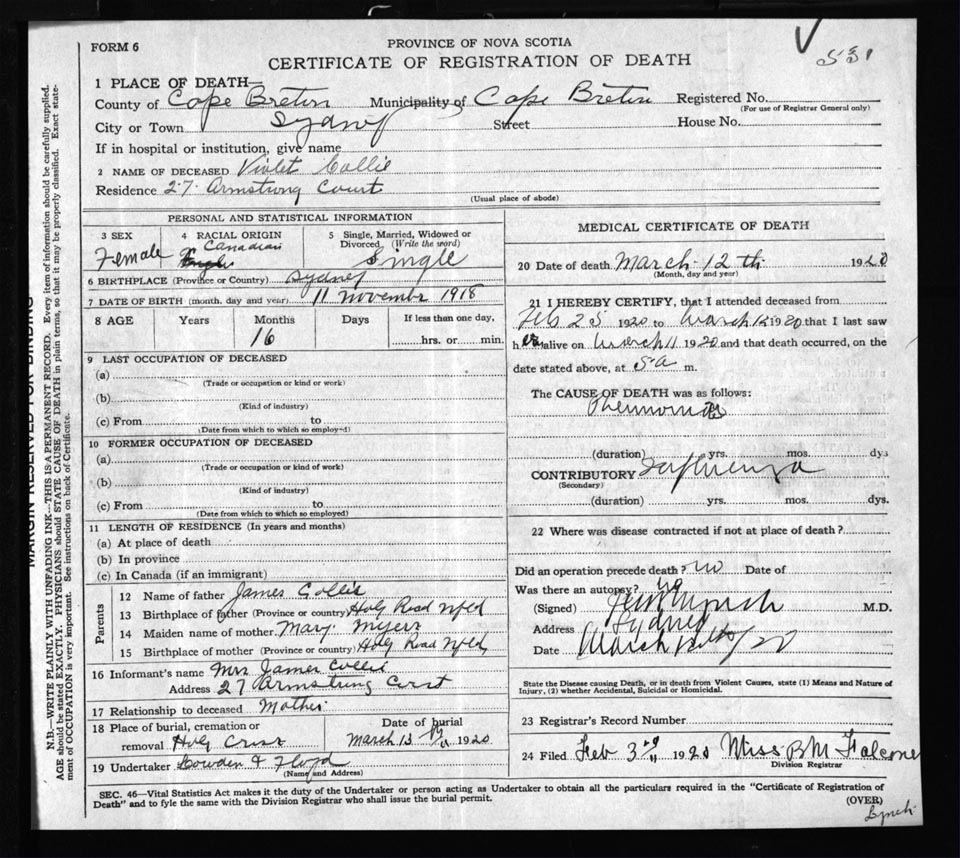 FORM 6
PROVINCE OF NOVA SCOTIA
CERTIFICATE OF REGISTRATION OF DEATH
531
1 PLACE OF DEATH—
County of Cape Breton Municipality of Cape Breton Registered No.
(For use of Registrar General only)
City or Town Sydney Street House No.
If in hospital or institution, give name
2 NAME OF DECEASED Violet Collie
Residence 27 Armstrong Court
(Usual place of abode)
PERSONAL AND STATISTICAL INFORMATION
3 SEX Female
4 RACIAL ORIGIN Canadian
5 Single, Married, Widowed or Divorced. (Write the word) Single
6 BIRTHPLACE (Province or Country) Sydney
7 DATE OF BIRTH (month, day and year) 11 November 1918
8 AGE Years Months Days If less than one day,
16 hrs. or min.
9 LAST OCCUPATION OF DECEASED
(a)
(Trade or occupation or kind or work)
(b)
(Kind of industry)
(c) From to
(Date from which to which so employ-d)
10 FORMER OCCUPATION OF DECEASED
(a)
(Trade or occupation or kind of work)
(b)
(Kind of industry)
(c) From to
(Date from which to which so employed)
11 LENGTH OF RESIDENCE (In years and months)
(a) At place of death
(b) In province
(c) In Canada (if an immigrant)
Parents
12 Name of father James Collie
13 Birthplace of father (Province or country) Holy Road Nfld
14 Maiden name of mother Mary Myers
15 Birthplace of mother (Province or country) Holy Road Nfld
16 Informant's name Mrs James Collie
Address 27 Armstrong Court
17 Relationship to deceased Mother
18 Place of burial, cremation or removal Holy Cross
Date of burial March 13 1920
19 Undertaker Lowden & Floyd
(Name and Address)
MEDICAL CERTIFICATE OF DEATH
20 Date of death March 12th 1920
(Month, day and year)
21 I HEREBY CERTIFY, that I attended deceased from
Feb 25 1920 to March 12 1920 that I last saw
her alive on March 11 1920 and that death occurred, on the
date stated above, at 5 a m.
The CAUSE OF DEATH was as follows:
Pneumonia
(duration) yrs. mos. dys
CONTRIBUTORY Influenza
(Secondary)
(duration) yrs. mos. dys.
22 Where was disease contracted if not at place of death?
Did an operation precede death? no Date of
Was there an autopsy? no
(Signed) Lynch M.D.
Address Sydney
Date March 20
State the Disease causing Death, or in death from Violent Causes, state (1) Means and Nature of
Injury, (2) whether Accidental, Suicidal or Homicidal.
23 Registrar's Record Number
24 Filed Feb 3 1920 Miss B M Falconer
Division Registrar
SEC. 46—Vital Statistics Act makes it the duty of the Undertaker or person acting as Undertaker to obtain all the particulars required in the "Certificate of Registration of
Death" and to fyle the same with the Division Registrar who shall issue the burial permit.
(OVER)
Lynch
MARGIN RESERVED FOR BINDING
N.B.—WRITE PLAINLY WITH UNFADING INK—THIS IS A PERMANENT RECORD. Every item of information should be carefully supplied.
AGE should be stated EXACTLY. PHYSICIANS should STATE CAUSE OF DEATH in plain terms, so that it may be properly classified. Exact state-
ment of OCCUPATION is very important. See instructions on back of Certificate.